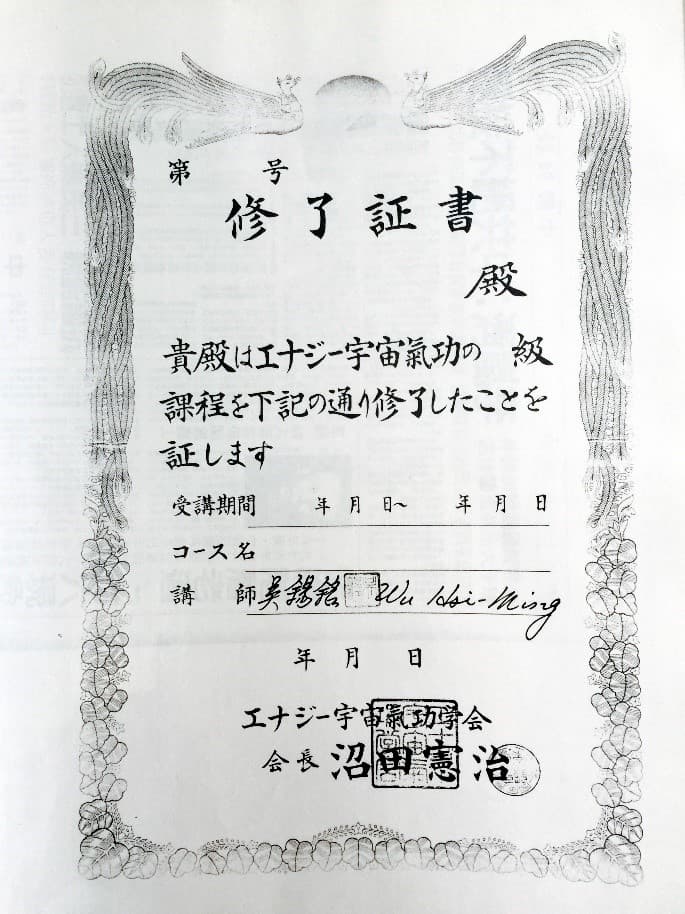 第 号
修了証書
殿
貴殿はエナジー宇宙氣功の 級
課程を下記の通り修了したことを
証します
受講期間 年 月 日〜 年 月 日
コース名
講 師 吳錫銘 Wu Hsi-Ming
年 月 日
エナジー宇宙氣功学会
会長 沼田憲治